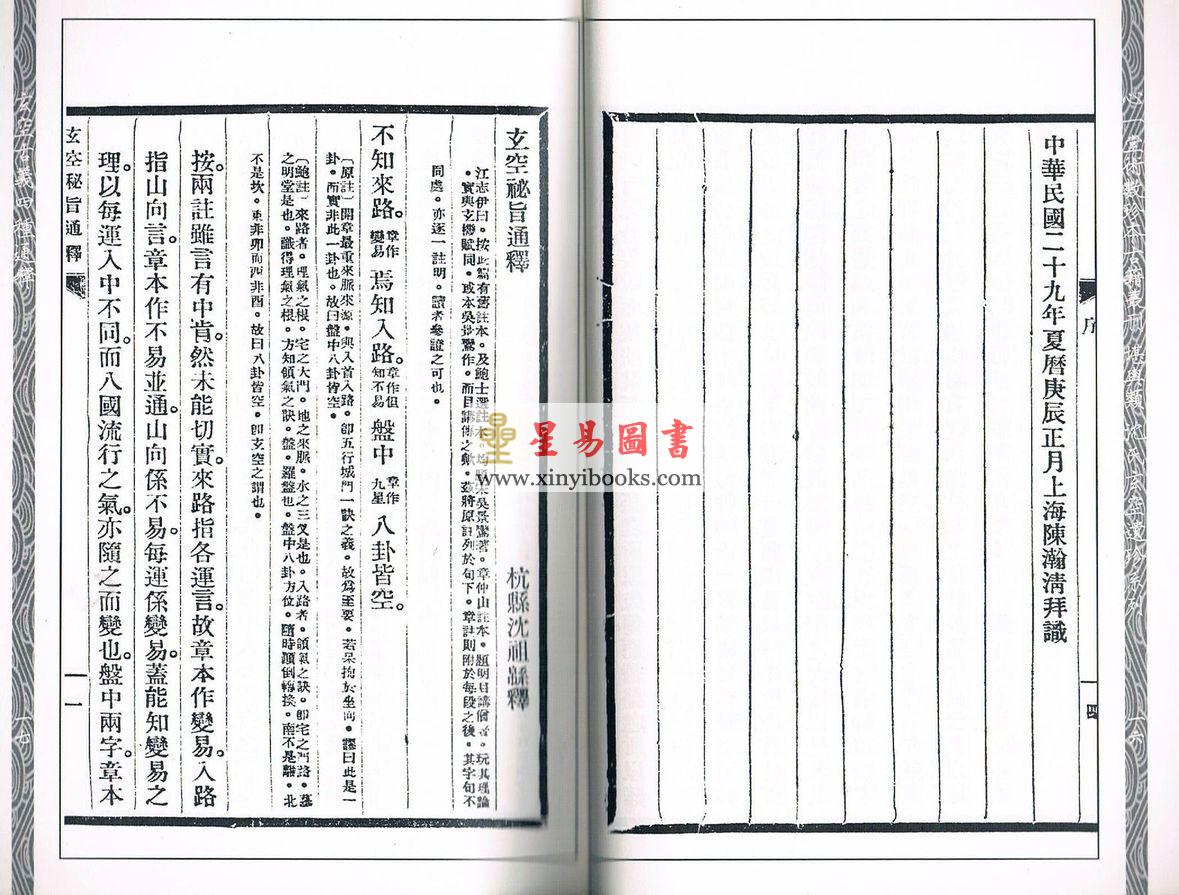 中華民國二十九年夏曆庚辰正月上海陳瀚清拜識
序
一四
玄空祕旨通釋
杭縣沈祖緜釋
江志伊曰。按此篇有舊註本。及鮑士選註本。均題宋吳景鸞著。章仲山註本。題明目講僧著。玩其理論
。實與玄機賦同。或本吳景鸞作。而目講傳之歟。茲將原註列於句下。章註則附於每段之後。其字句不
同處。亦逐一註明。讀者參證之可也。
不知來路。章作變易焉知入路。章作但知不易盤中章作九星八卦皆空。
〔原註〕開章最重來脈來源。與入首入路。卽五行城門一訣之義。故爲至要。若呆拘於坐向。謬曰此是一
卦。而實非此一卦也。故曰盤中八卦皆空。
〔鮑註〕來路者。理氣之根。宅之大門。地之來脈。水之三叉是也。入路者。領氣之訣。卽宅之門路。墓
之明堂是也。識得理氣之根。方知領氣之訣。盤。羅盤也。盤中八卦方位。隨時顛倒轉換。南不是離。北
不是坎。東非卯而西非酉。故曰八卦皆空。卽玄空之謂也。
按。兩註雖言有中肯。然未能切實。來路指各運言。故章本作變易。入路
指山向言。章本作不易並通。山向係不易。每運係變易。蓋能知變易之
理。以每運入中不同。而八國流行之氣。亦隨之而變也。盤中兩字。章本
玄空秘旨通釋
一
星易圖書
www.xinyibooks.com